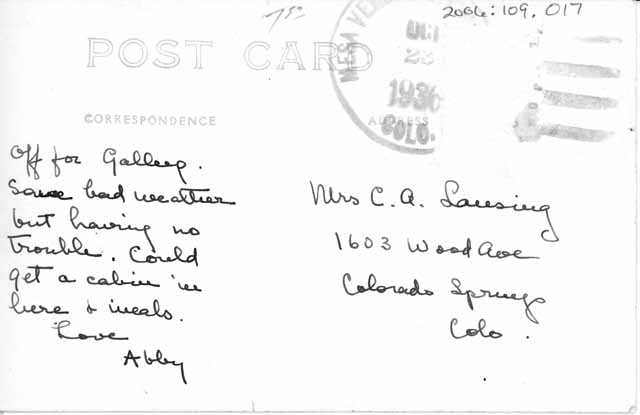 75¢
2006:109.017
POST CARD
MESA VE
OCT
23
1936
COLO.
CORRESPONDENCE
ADDRESS
Off for Gallup.
Some bad weather
but having no
trouble. Could
get a cabin in
here & meals.
Love
Abby
Mrs C. A. Lansing
1603 Wood Ave
Colorado Springs
Colo.